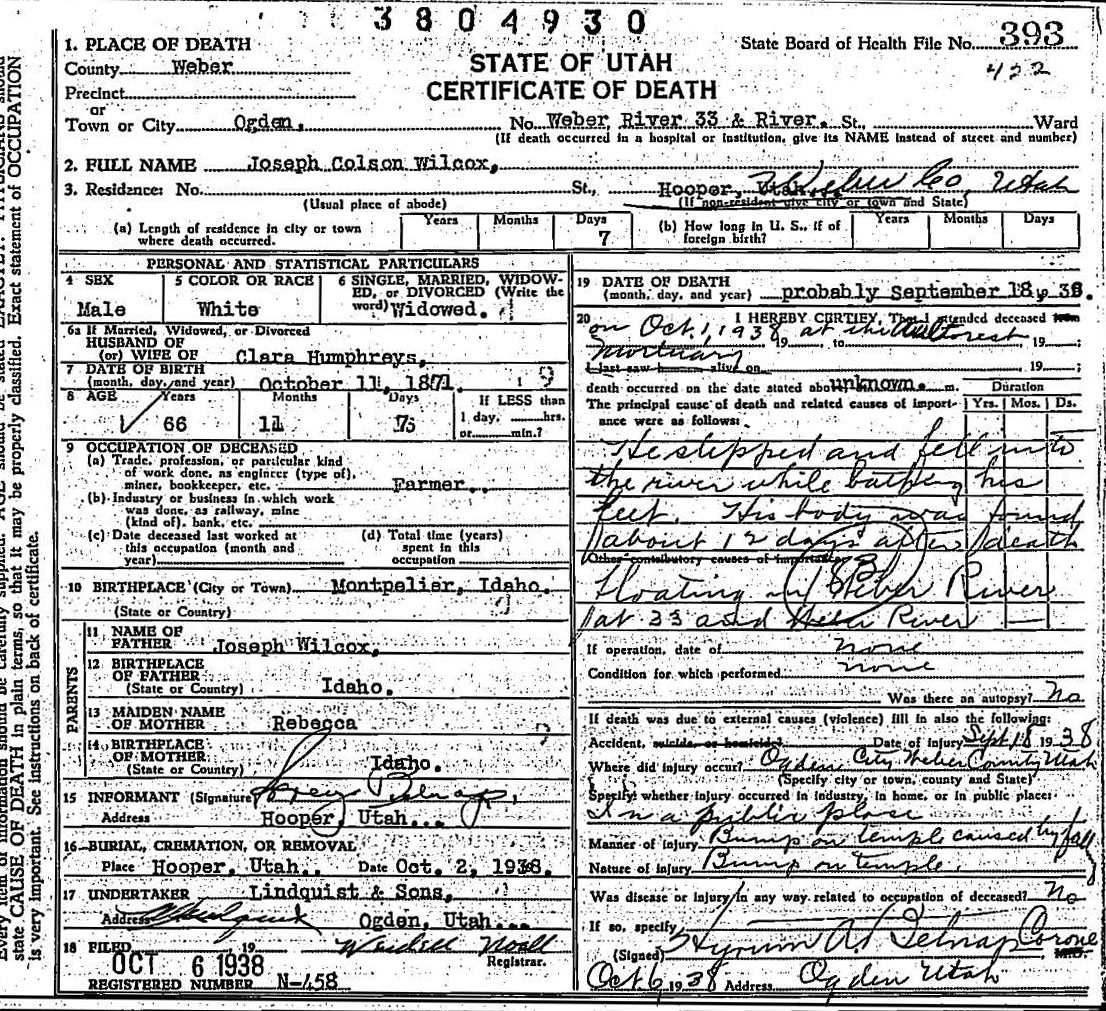 3804930
1. PLACE OF DEATH
State Board of Health File No. 393
County Weber
STATE OF UTAH
422
Precinct
CERTIFICATE OF DEATH
or
Town or City Ogden, No. Weber River 33 & River. St., Ward
(If death occurred in a hospital or institution, give its NAME instead of street and number)
2. FULL NAME Joseph Colson Wilcox,
3. Residence: No. St., Hooper, Utah. Weber Co, Utah
(Usual place of abode) (If non-resident give city or town and State)
(a) Length of residence in city or town where death occurred. Years Months Days 7
(b) How long in U. S., if of foreign birth? Years Months Days
PERSONAL AND STATISTICAL PARTICULARS
4 SEX Male
5 COLOR OR RACE White
6 SINGLE, MARRIED, WIDOW-
ED, or DIVORCED (Write the
word) Widowed.
6a If Married, Widowed, or Divorced
HUSBAND OF
(or) WIFE OF Clara Humphreys,
7 DATE OF BIRTH
(month, day, and year) October 11, 1871.
8 AGE Years Months Days If LESS than
66 11 7 1 day, hrs.
or min.?
9 OCCUPATION OF DECEASED
(a) Trade, profession, or particular kind
of work done, as engineer (type of),
miner, bookkeeper, etc. Farmer..
(b) Industry or business in which work
was done, as railway, mine
(kind of), bank, etc.
(c) Date deceased last worked at
this occupation (month and
year)
(d) Total time (years)
spent in this
occupation
10 BIRTHPLACE (City or Town) Montpelier, Idaho.
(State or Country)
PARENTS
11 NAME OF
FATHER Joseph Wilcox,
12 BIRTHPLACE
OF FATHER
(State or Country) Idaho.
13 MAIDEN NAME
OF MOTHER Rebecca
14 BIRTHPLACE
OF MOTHER
(State or Country) Idaho.
15 INFORMANT (Signature) Belnap,
Address Hooper, Utah...
16 BURIAL, CREMATION, OR REMOVAL
Place Hooper, Utah.. Date Oct. 2, 1938.
17 UNDERTAKER Lindquist & Sons,
Address Ogden, Utah...
18 FILED 19 Wendell Noall
Registrar.
OCT 6 1938
REGISTERED NUMBER N-458
19 DATE OF DEATH
(month, day, and year) probably September 18, 38.
20 I HEREBY CERTIFY, That I attended deceased from
on Oct. 1, 1938 at the 19 , to 19 ;
Mortuary
I last saw h alive on 19 ;
death occurred on the date stated above unknown. m. Duration
The principal cause of death and related causes of import-
ance were as follows: Yrs. Mos. Ds.
He slipped and fell into
the river while bathing his
feet. His body was found
about 12 days after death
Other contributory causes of importance
Floating in Weber River
at 33 and Weber River
If operation, date of none
Condition for which performed none
Was there an autopsy? No
If death was due to external causes (violence) fill in also the following:
Accident, suicide, or homicide? Date of injury Sept 18 1938
Where did injury occur? Ogden City Weber County Utah
(Specify city or town, county and State)
Specify whether injury occurred in industry, in home, or in public place:
In a public place
Manner of injury Bump on temple caused by fall
Nature of injury Bump on temple.
Was disease or injury in any way related to occupation of deceased? No
If so, specify
(Signed) Hyrum A. Belnap Coroner
M.D.
Oct 6, 1938 Address Ogden Utah
state CAUSE OF DEATH in plain terms, so that it may be properly classified. Exact statement of OCCUPATION
is very important. See instructions on back of certificate.